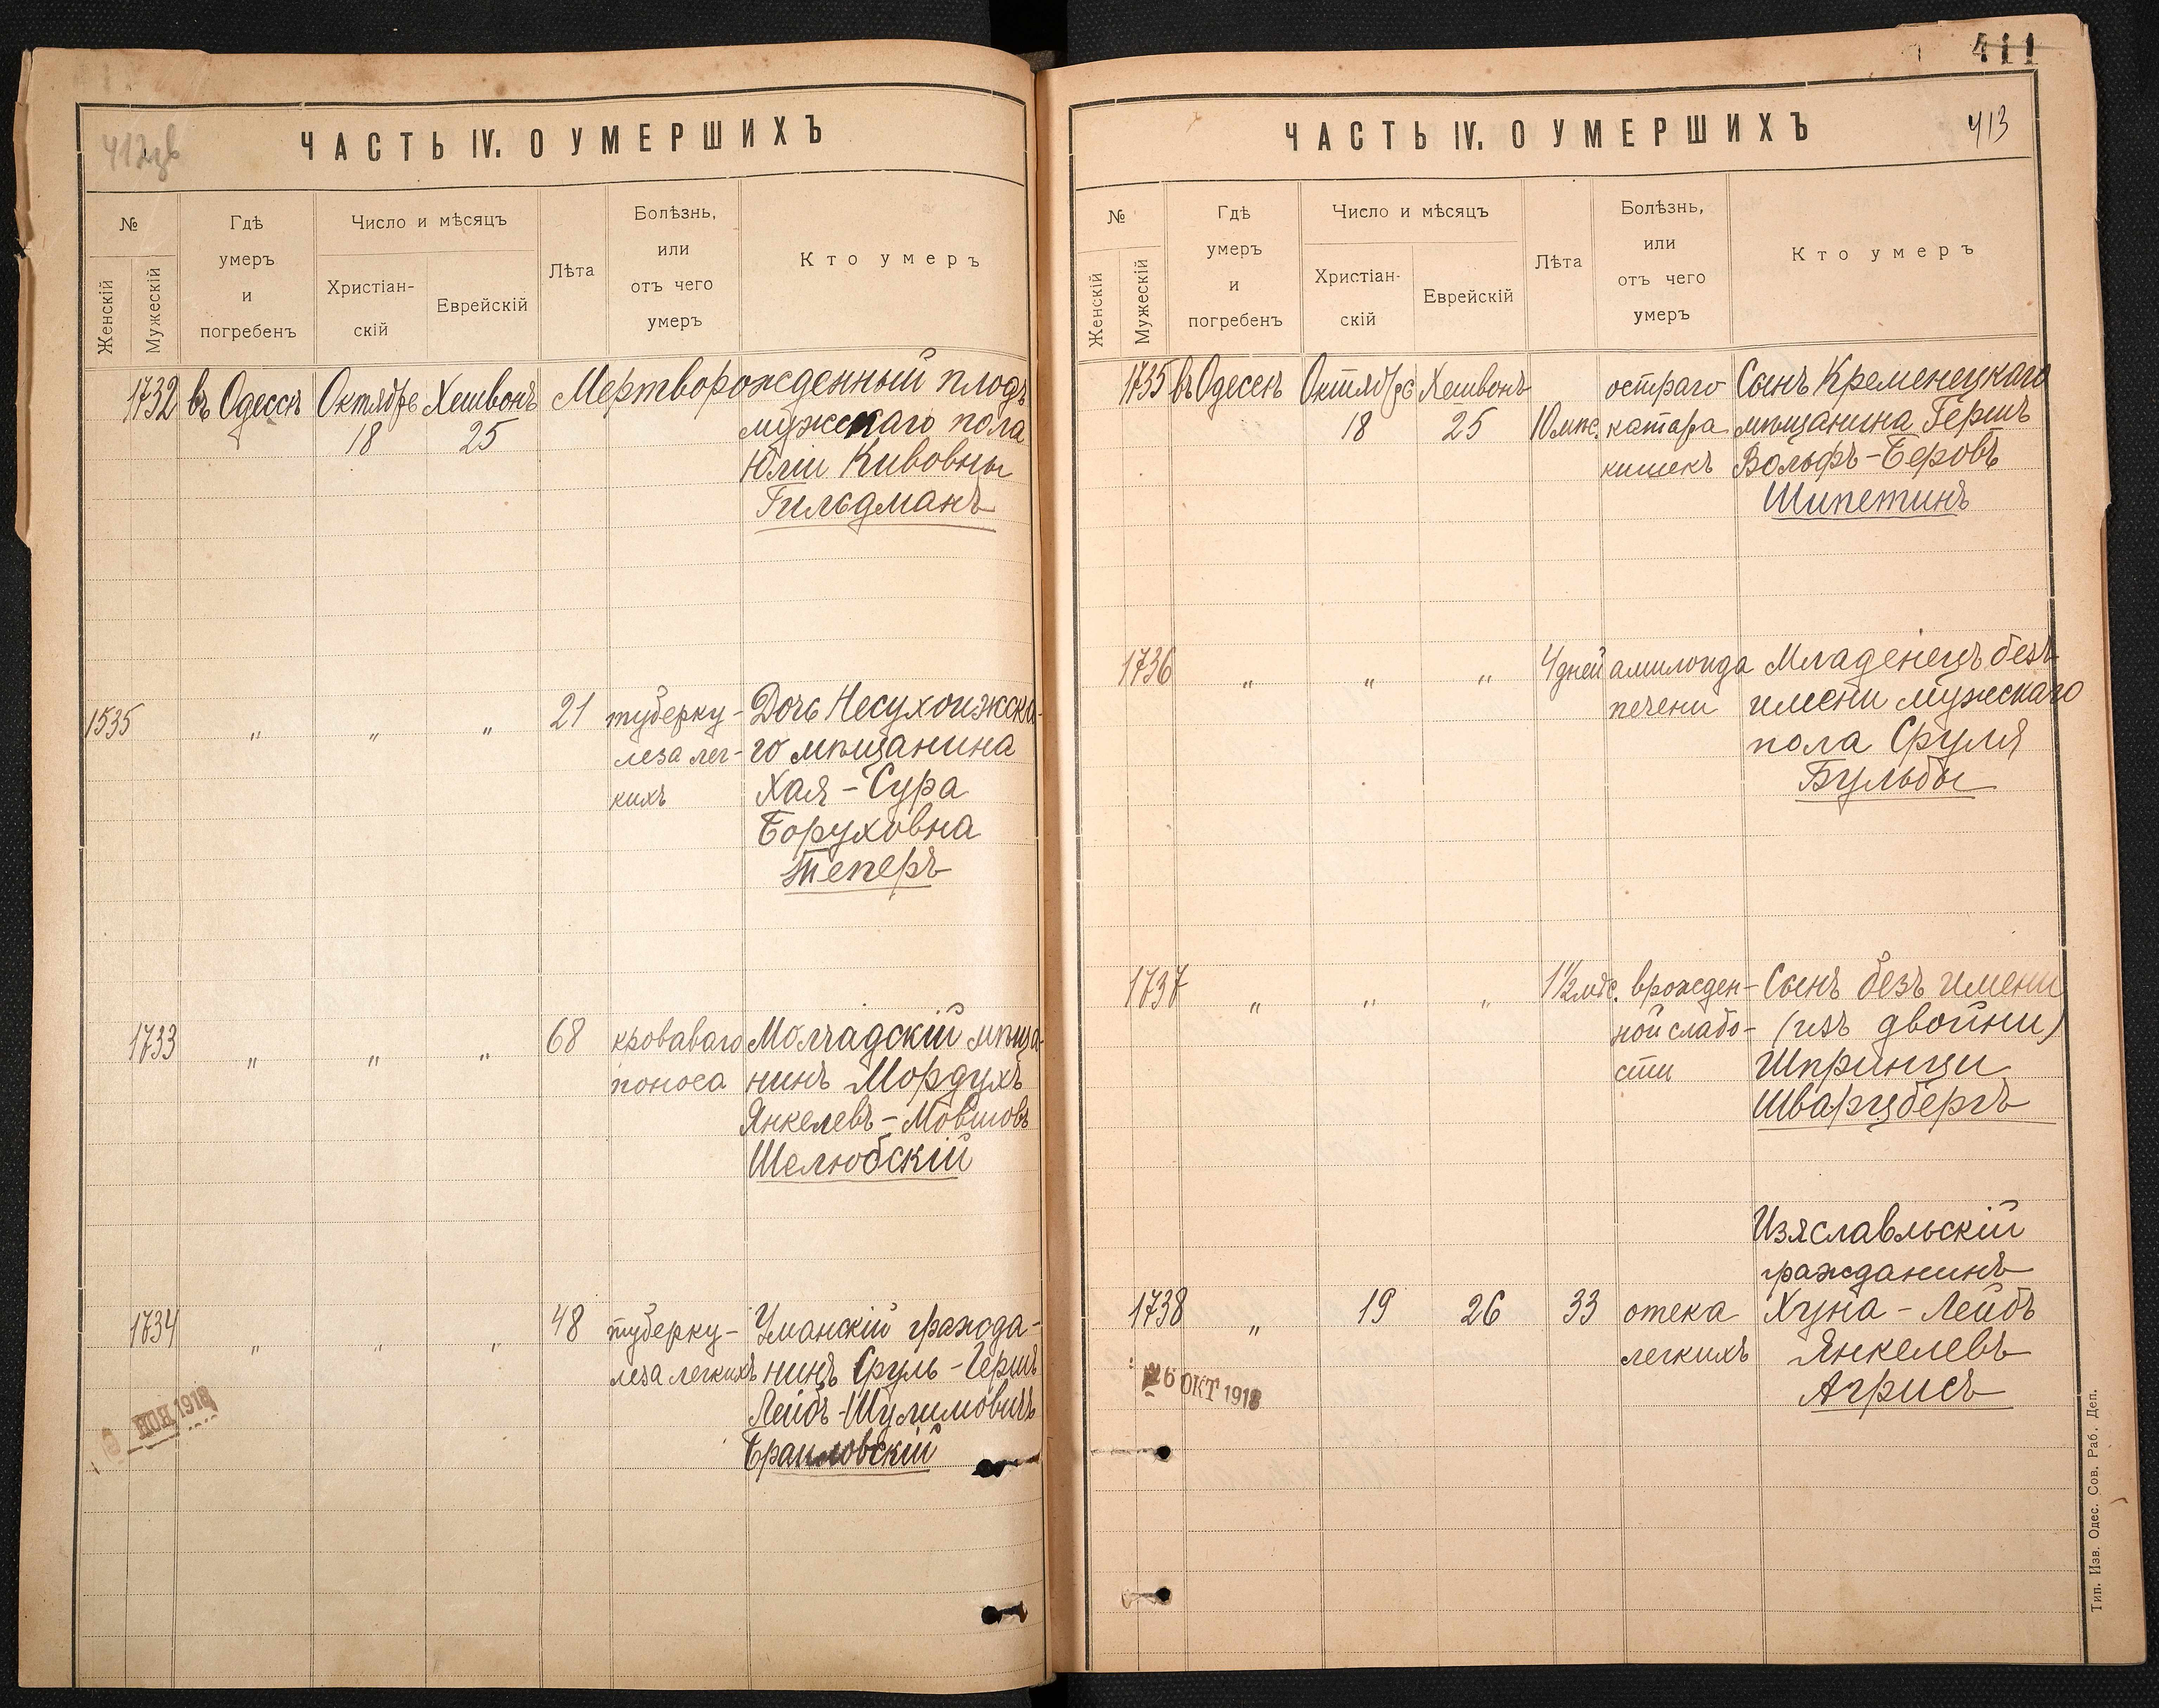 ЧАСТЬ IV. О УМЕРШИХЪ
№
Женскій
Мужескій
Гдѣ
умеръ
и
погребенъ
Число и мѣсяцъ
Христіан-
скій
Еврейскій
Лѣта
Болѣзнь,
или
отъ чего
умеръ
Кто умеръ
1732 въ Одессѣ Октября Хешвонъ Мертворожденный плодъ
18 25 мужескаго пола
Юліи Кивовны
Гильдманъ
1535 " " " 21 туберку- Дочь Несухоижска-
леза лег- го мѣщанина
кихъ Хая-Сура
Боруховна
Теперъ
1733 " " " 68 кроваваго Молчадскій мѣща-
поноса нинъ Мордухъ
Янкелевъ-Мовшовъ
Шелюбскій
1734 " " " 48 туберку- Уманскій гражда-
леза легкихъ нинъ Сруль-Гершъ
Лейбъ-Шулимовичъ
Браиловскій
НОЯ 1918
411
ЧАСТЬ IV. О УМЕРШИХЪ
413
№
Женскій
Мужескій
Гдѣ
умеръ
и
погребенъ
Число и мѣсяцъ
Христіан-
скій
Еврейскій
Лѣта
Болѣзнь,
или
отъ чего
умеръ
Кто умеръ
1735 въ Одессѣ Октября Хешвонъ остраго Сынъ Кременецкаго
18 25 10 мѣс. катара мѣщанина Гершъ
кишекъ Вольфъ-Беровъ
Шипетинъ
1736 " " " 4 дней амилоида Младенецъ безъ
печени имени мужескаго
пола Сруля
Бульбы
1737 " " " 1½ мѣс. врожден- Сынъ безъ имени
ной слабо- (изъ двойни)
сти Шпринцы
Шварцбергъ
Изяславльскій
гражданинъ
1738 " 19 26 33 отека Хуна-Лейбъ
легкихъ Янкелевъ
Агрисъ
26 ОКТ 1918
Тип. Изв. Одес. Сов. Раб. Деп.